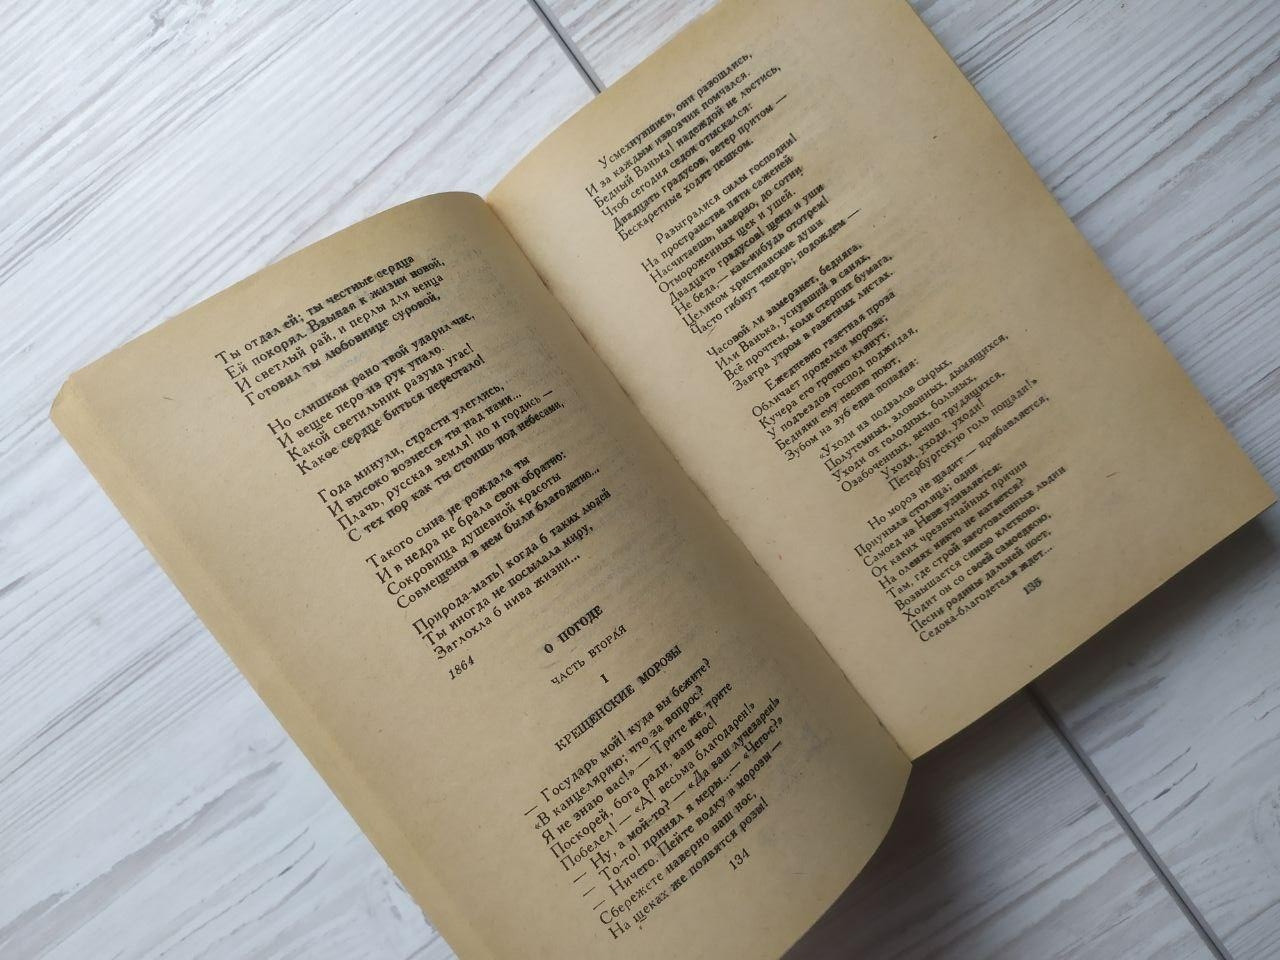 Ты отдал ей; ты честные сердца
Ей покорял. Взывая к жизни новой,
И светлый рай, и перлы для венца
Готовил ты любовнице суровой,
Но слишком рано твой ударил час,
И вещее перо из рук упало.
Какой светильник разума угас!
Какое сердце биться перестало!
Года минули, страсти улеглись,
И высоко вознесся ты над нами...
Плачь, русская земля! но и гордись —
С тех пор как ты стоишь под небесами,
Такого сына не рождала ты
И в недра не брала свои обратно:
Сокровища душевной красоты
Совмещены в нем были благодатно...
Природа-мать! когда б таких людей
Ты иногда не посылала миру,
Заглохла б нива жизни...
1864
О ПОГОДЕ
ЧАСТЬ ВТОРАЯ
I
КРЕЩЕНСКИЕ МОРОЗЫ
— Государь мой! куда вы бежите?
«В канцелярию; что за вопрос?
Я не знаю вас!» — Трите же, трите
Поскорей, бога ради, ваш нос!
Побелел! — «А! весьма благодарен!»
— Ну, а мой-то? — «Да ваш лучезарен!»
— То-то! принял я меры... — «Чего-с?»
— Ничего. Пейте водку в морозы —
Сбережете наверно ваш нос,
На щеках же появятся розы!
134
Усмехнувшись, они разошлись,
И за каждым извозчик помчался.
Бедный Ванька! надеждой не льстись,
Чтоб сегодня седок отыскался:
Двадцать градусов, ветер притом —
Бескаретные ходят пешком.
Разыгралися силы господни!
На пространстве пяти саженей
Насчитаешь, наверно, до сотни
Отмороженных щек и ушей.
Двадцать градусов! щеки и уши
Не беда,— как-нибудь ототрем!
Целиком христианские души
Часто гибнут теперь; подождем —
Часовой ли замерзнет, бедняга,
Или Ванька, уснувший в санях,
Всё прочтем, коли стерпит бумага,
Завтра утром в газетных листах.
Ежедневно газетная проза
Обличает проделки мороза;
Кучера его громко клянут,
У подъездов господ поджидая,
Бедняки ему песню поют,
Зубом на зуб едва попадая:
«Уходи из подвалов сырых,
Полутемных, зловонных, дымящихся,
Уходи от голодных, больных,
Озабоченных, вечно трудящихся,
Уходи, уходи, уходи!
Петербургскую голь пощади!»
Но мороз не щадит — прибавляется,
Приуныла столица; один
Самоед на Неве удивляется:
От каких чрезвычайных причин
На оленях никто не катается?
Там, где строй заготовленных льдин
Возвышается синею клеткою,
Ходит он со своей самоедкою,
Песни родины дальней поет,
Седока-благодетеля ждет...
135